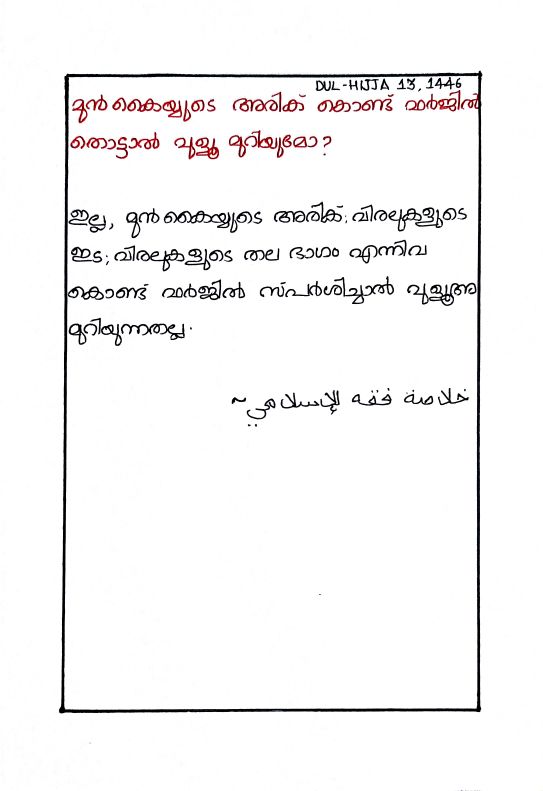 DUL-HIJJA 13, 1446
മുൻ കൈയ്യുടെ അരിക് കൊണ്ട് ഫർജിൽ
തൊട്ടാൽ വുളൂ മുറിയുമോ?
ഇല്ല, മുൻ കൈയ്യുടെ അരിക്; വിരലുകളുടെ
ഇട; വിരലുകളുടെ തല ഭാഗം എന്നിവ
കൊണ്ട് ഫർജിൽ സ്പർശിച്ചാൽ വുളൂഅ
മുറിയുന്നതല്ല.
خلاصة فقه الإسلامي~